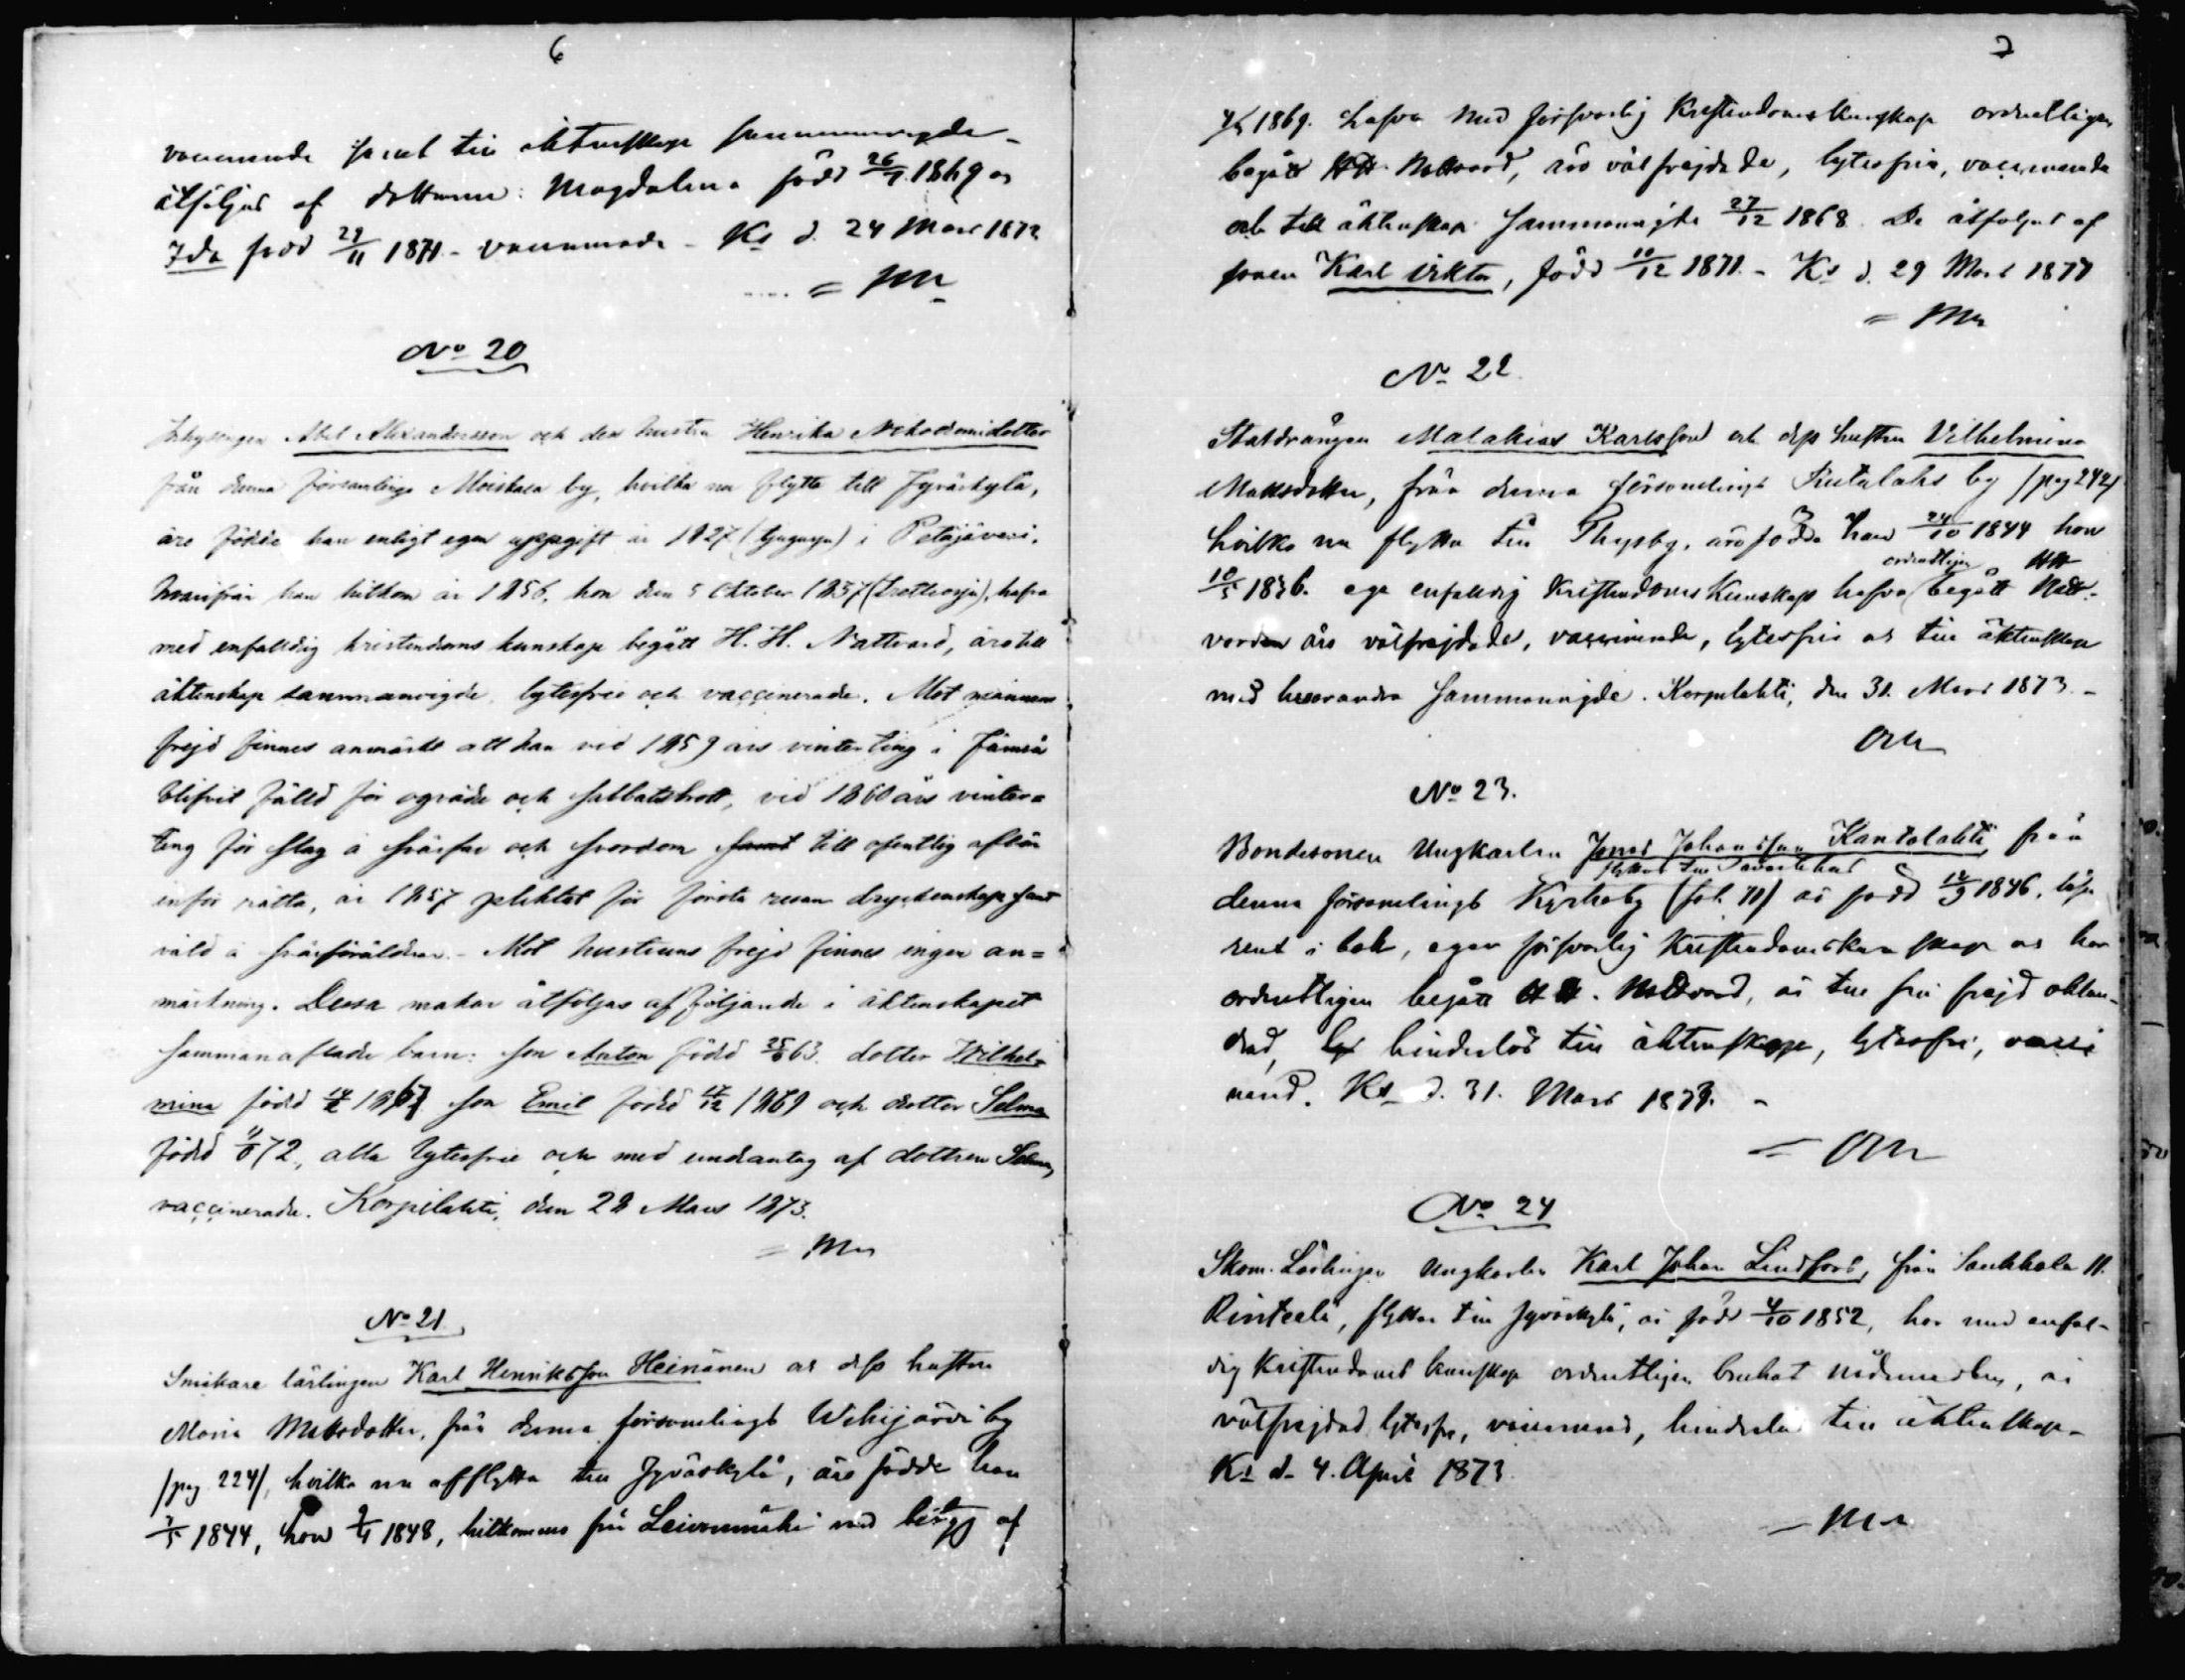 6
vaccinerade samt till äktenskap sammanvigde -
åtföljas af döttrarne: Magdalena född 26/7 1869 os
Ida född 29/11 1871 - vaccinerade - Ks d. 24 Mars 1873
= Mn
No 20
Inhysingen Abel Alexandersson och dess hustru Henrika Nikodemidotter
från denna församlings Moiskala by, hvilka nu flytta till Jyväskylä,
äro födde han enligt egen uppgift år 1827 (tjugusju) i Petäjävesi,
hvarifrån han hitkom år 1856, hon den 5 Oktober 1837 (trettiosju), hafva
med enfalldig kristendoms kunskap begått H. H. Nattvard, äro till
äktenskap sammanvigde, lytesfrie och vaccinerade. Mot mannens
frejd finnes anmärkt att han vid 1859 års vinterting i Jämsä
blifvit fälld för ogräde och sabbatsbrott, vid 1860 års vinter=
ting för slag å svärfar och svordom samt till offentlig afbön
inför rätta, år 1857 pliktat för första resan dryckenskap samt
våld å svärföräldrar. - Mot hustruns frejd finnes ingen an=
märkning. Dessa makar åtföljas af följande i äktenskapet
sammanaflade barn: son Anton född 25/6 63. dotter Wilhel-
mina född 14/2 1867 son Emil född 17/12 1869 och dotter Selma
född 11/8 72, alla lytesfrie och med undantag af dottren Selma,
vaccinerade. Korpilahti, den 28 Mars 1873.
= Mn
No 21
Snickare lärlingen Karl Henriksson Heinänen os dess hustru
Maria Mattsdotter, från denna församlings Wihijärvi by
/pag 224/, hvilka nu afflytta till Jyväskylä, äro födde han
7/5 1844, hon 9/4 1848, hitkommen från Leivonmäki med betyg af
7
4/5 1869. hafva med försvarlig Kristendomskunskap ordentligen
begått H.H. Nattvard, äro välfrejdade, lytesfria, vaccinerade
och till äktenskap sammanvigde 27/12 1868. De åtföljas af
sonen Karl Viktor, född 10/12 1871. - Ks d. 29 Mars 1873
= Mn
No 22.
Statdrängen Malakias Karlsson och dess hustru Vilhelmina
Mattsdotter, från denna församlings Rutalahs by /pag 242/
hvilka nu flytta till Thysby, äro födda han 24/10 1844 hon
10/5 1836. ega enfalldig Kristendoms Kunskap hafva ordentligen begått HH Natt-
varden äro välfrejdade, vaccinerade, lytesfria os till äktenskap
med hvarandra sammanvigde. Korpilahti, den 31. Mars 1873. -
Mn
No 23.
Bondesonen Ungkarlen Jonas Johansson Kantolahti från
flyttar till Tavastehus
denna församlings Kyrkoby (fol. 70) är född 12/9 1846, läser
rent i bok, eger försvarlig Kristendomskunskap os har
ordentligen begått H.H. Nattvard, är till sin frejd oklan-
drad, hinderlös till äktenskap, lytesfri, vacci
nerad. Ks d. 31. Mars 1873. -
= Mn
No 24
Skom. Lärlingen Ungkarlen Karl Johan Lindfors, från Saukkola 11.
Rinteelä, flyttar till Jyväskylä, är född 4/10 1852, har med enfal-
dig Kristendoms kunskap ordentligen brukat nådemedlen, är
välfrejdad, lytesfri, vaccinerad, hinderlös till äktenskap -
Ks d. 4. April 1873.
- Mn